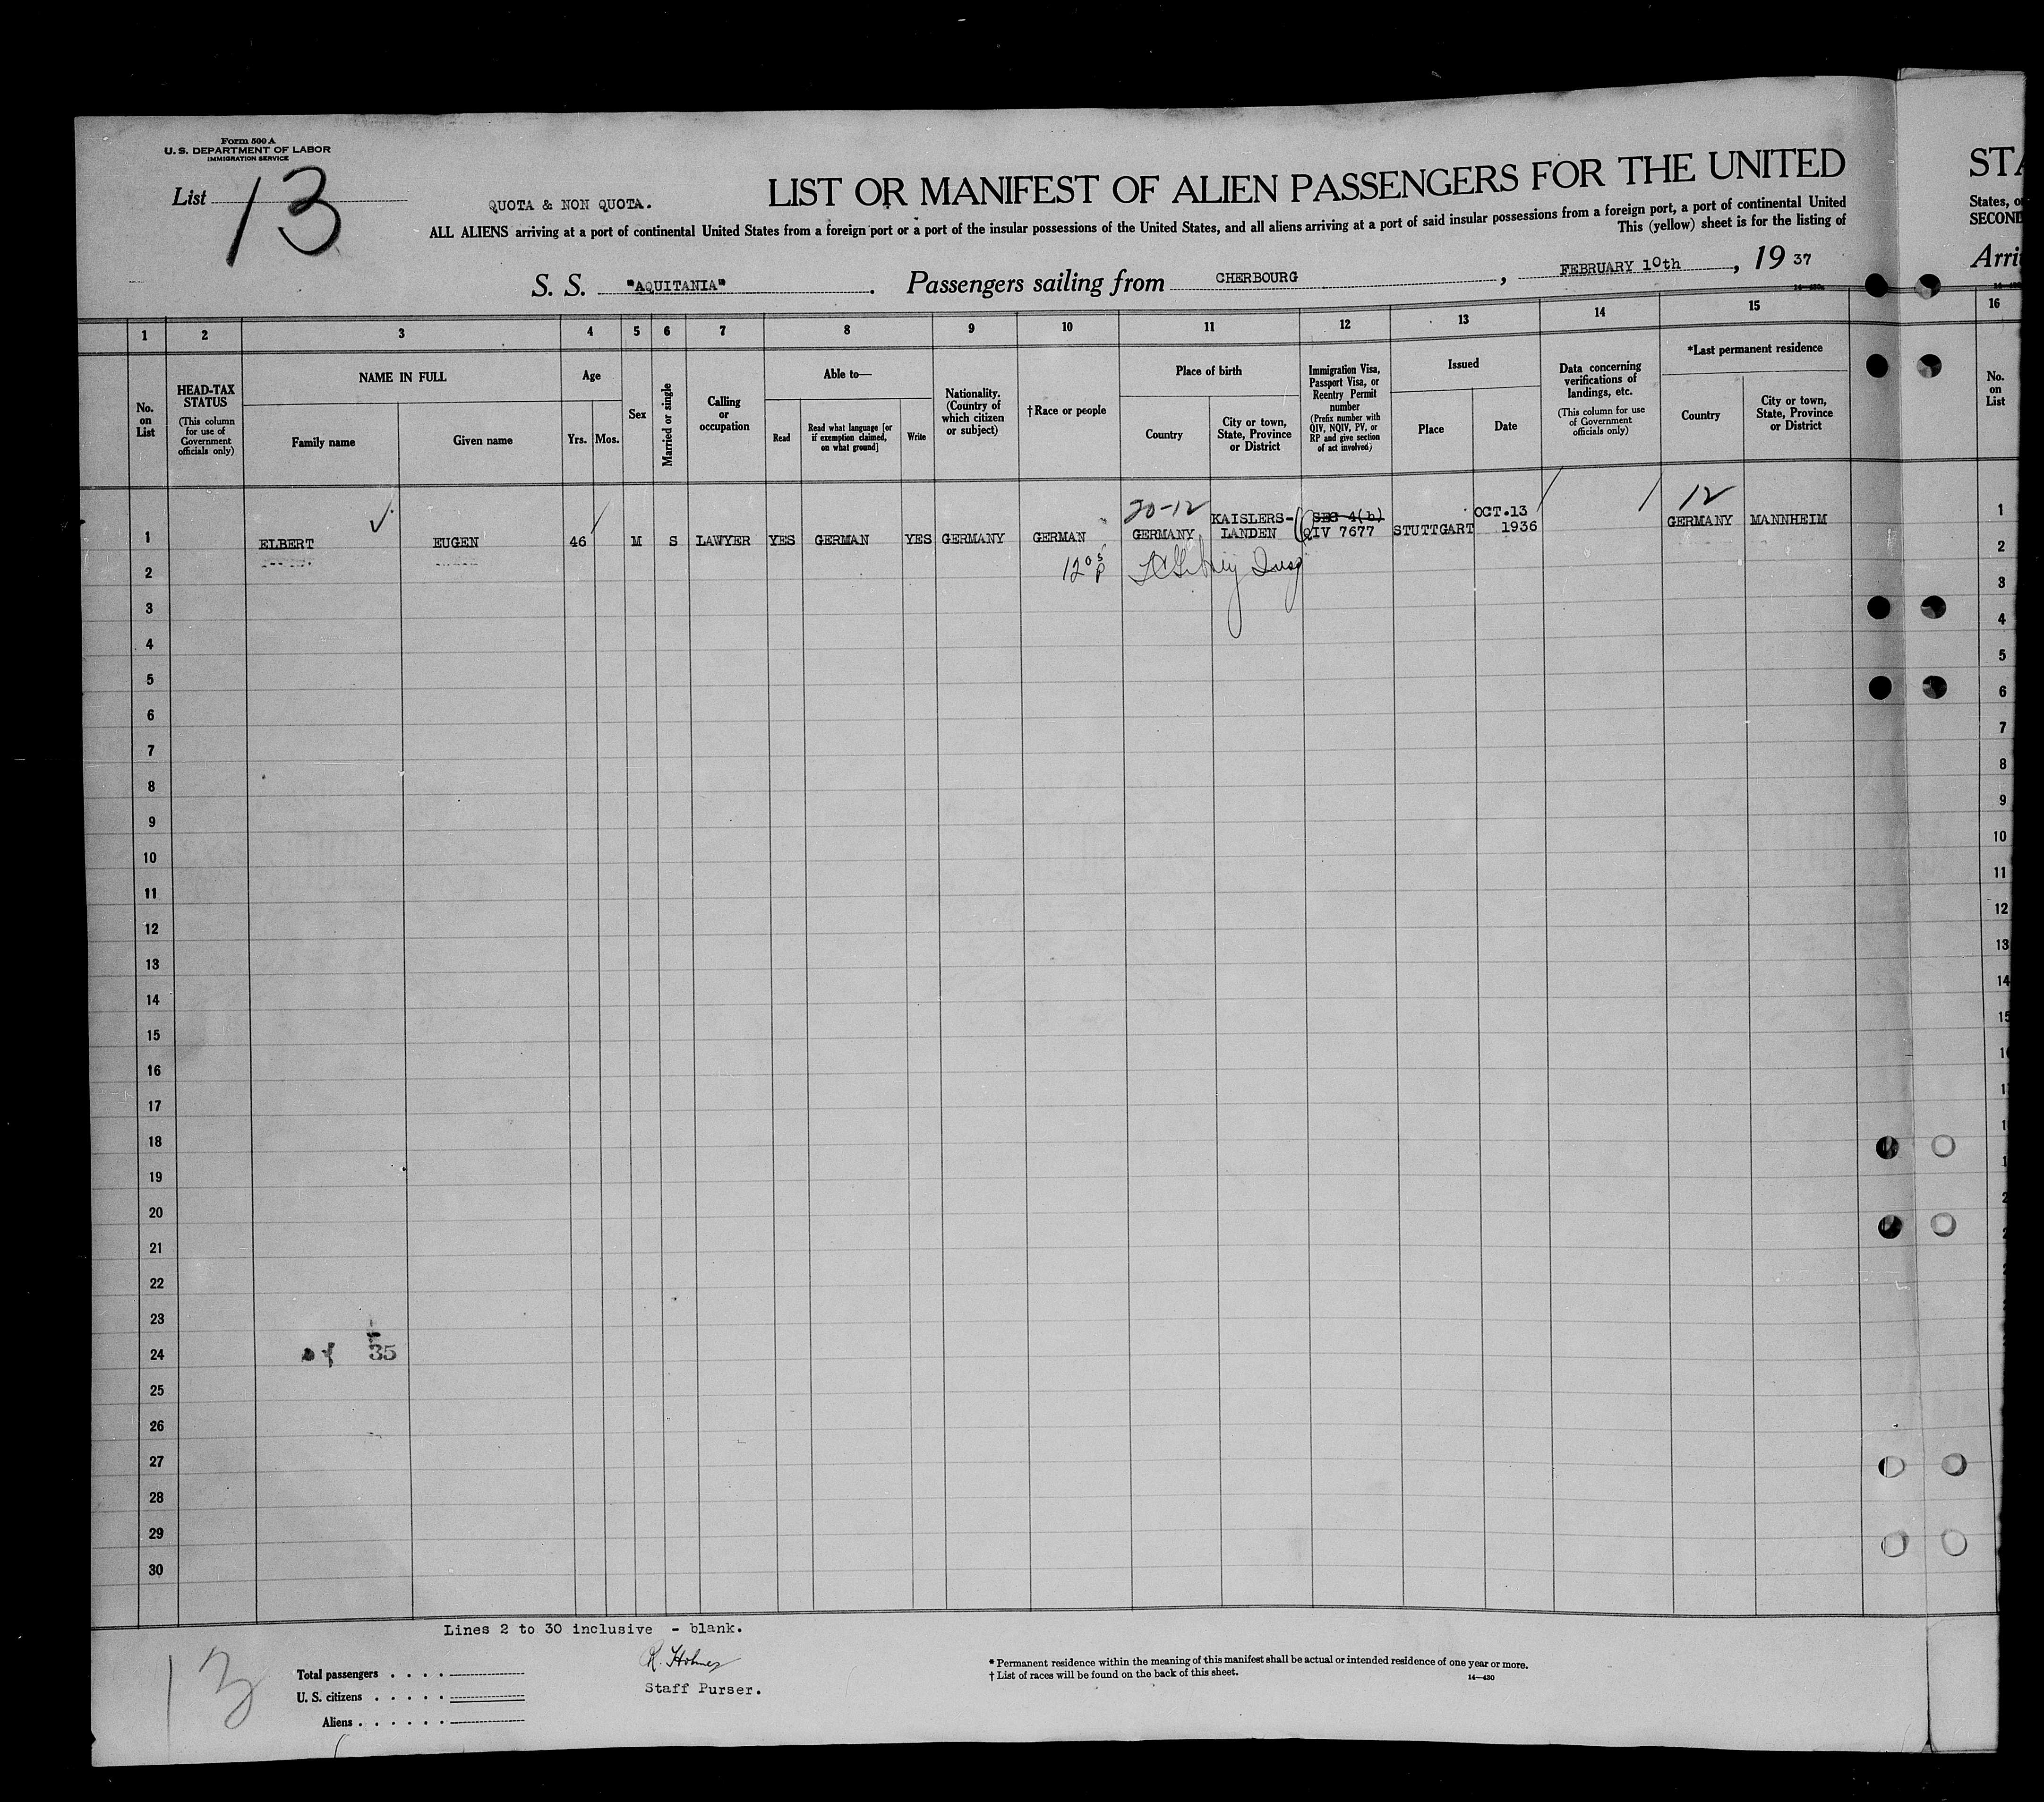 Form 500 A
U. S. DEPARTMENT OF LABOR
IMMIGRATION SERVICE
List 13
QUOTA & NON QUOTA.
LIST OR MANIFEST OF ALIEN PASSENGERS FOR THE UNITED
ALL ALIENS arriving at a port of continental United States from a foreign port or a port of the insular possessions of the United States, and all aliens arriving at a port of said insular possessions from a foreign port, a port of continental United
This (yellow) sheet is for the listing of
S. S. "AQUITANIA". Passengers sailing from CHERBOURG, FEBRUARY 10th, 19 37
STA
States, o
SECOND
Arri
1 2 3 4 5 6 7 8 9 10 11 12 13 14 15 16
No. on List
HEAD-TAX STATUS
(This column for use of Government officials only)
NAME IN FULL
Family name
Given name
Age
Yrs. Mos.
Sex
Married or single
Calling or occupation
Able to—
Read
Read what language [or if exemption claimed, on what ground]
Write
Nationality. (Country of which citizen or subject)
†Race or people
Place of birth
Country
City or town, State, Province or District
Immigration Visa, Passport Visa, or Reentry Permit number
(Prefix number with QIV, NQIV, PV, or RP and give section of act involved)
Issued
Place
Date
Data concerning verifications of landings, etc.
(This column for use of Government officials only)
*Last permanent residence
Country
City or town, State, Province or District
No. on List
20-12
12
1 ELBERT EUGEN 46 M S LAWYER YES GERMAN YES GERMANY GERMAN GERMANY KAISLERS-LANDEN SEC 4(b) QIV 7677 STUTTGART OCT.13 1936 GERMANY MANNHEIM 1
2 2
3 3
4 4
5 5
6 6
7 7
8 8
9 9
10 10
11 11
12 12
13 13
14 14
15 15
16
17
18
19
20
21
22
23
24 35
25
26
27
28
29
30
Lines 2 to 30 inclusive - blank.
13
Total passengers
U. S. citizens
Aliens
R. Holmes
Staff Purser.
* Permanent residence within the meaning of this manifest shall be actual or intended residence of one year or more.
† List of races will be found on the back of this sheet.
14—430